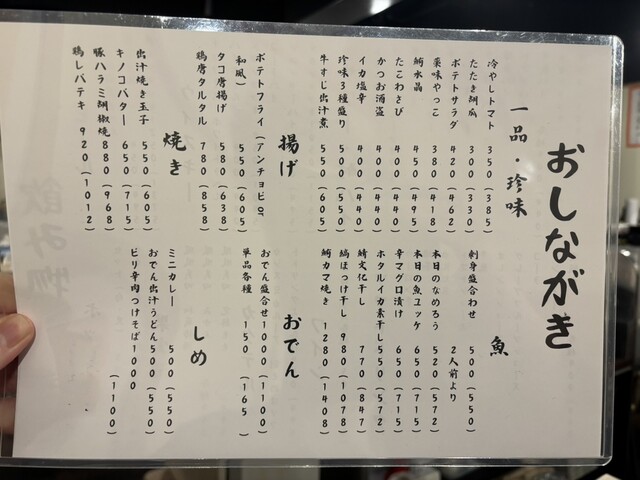 おしながき
一品・珍味
冷やしトマト 350(385)
たたき胡瓜 300(330)
ポテトサラダ 420(462)
薬味やっこ 380(418)
鮪水晶 450(495)
たこわさび 400(440)
かつお酒盗 400(440)
イカ塩辛 400(440)
珍味3種盛り 500(550)
牛すじ出汁煮 550(605)
揚げ
ポテトフライ(アンチョビor
和風) 550(605)
タコ唐揚げ 580(638)
鶏唐タルタル 780(858)
焼き
出汁焼き玉子 550(605)
キノコバター 650(715)
豚ハラミ胡椒焼 880(968)
鶏レバテキ 920(1012)
魚
刺身盛合わせ 500(550)
2人前より
本日のなめろう 520(572)
本日の魚ユッケ 650(715)
辛マグロ漬け 650(715)
ホタルイカ素干し 520(572)
鯖文化干し 770(847)
縞ほっけ干し 980(1078)
鮪カマ焼き 1280(1408)
おでん
おでん盛合せ 1000(1100)
単品各種 150(165)
しめ
ミニカレー 500(550)
おでん出汁うどん 500(550)
ピリ辛肉つけそば 1000
(1100)